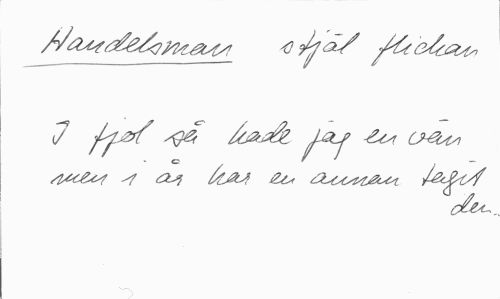 Handelsman stjäl flickan
I fjol så hade jag en vän
men i år har en annan tagit
den..